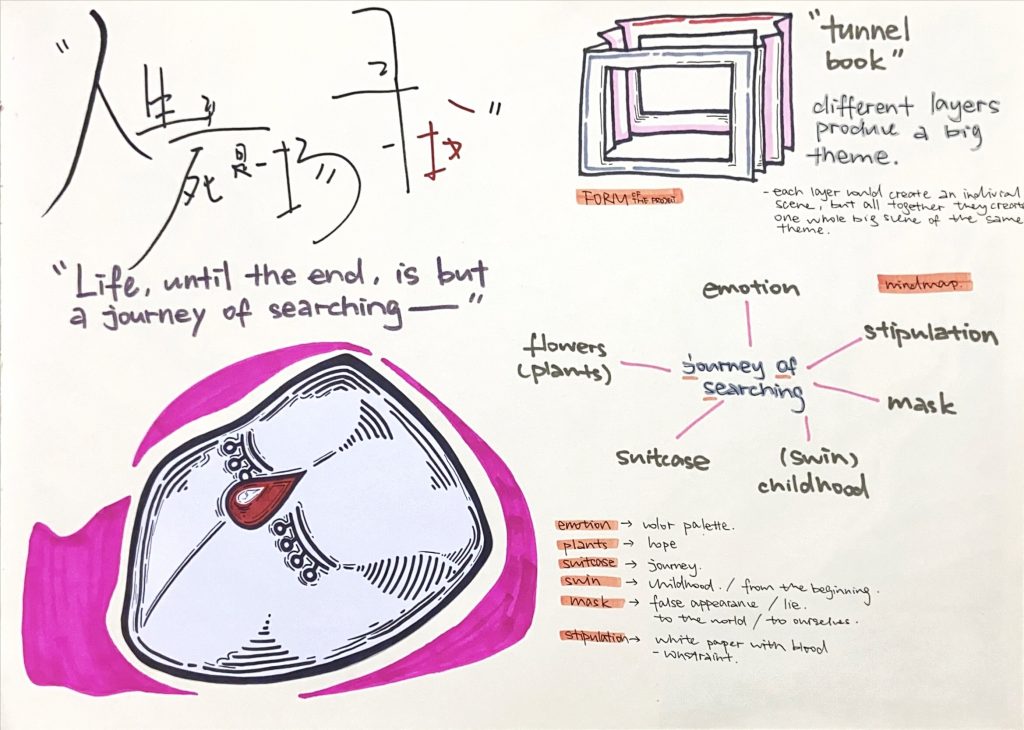 "人生到死是一场寻找"
"Life, until the end, is but
a journey of searching —"
"tunnel
book"
different layers
produce a big
theme.
FORM OF THE PRODUCT
- each layer would create an individual
scene, but all together they create
one whole big scene of the same
theme.
mindmap.
emotion
stipulation
flowers
(plants)
journey of
searching
mask
suitcase
(swin)
childhood
emotion → color palette.
plants → hope
suitcase → journey.
swin → childhood / from the beginning.
mask → false appearance / lie.
to the world / to ourselves.
stipulation → white paper with blood
- constraint.